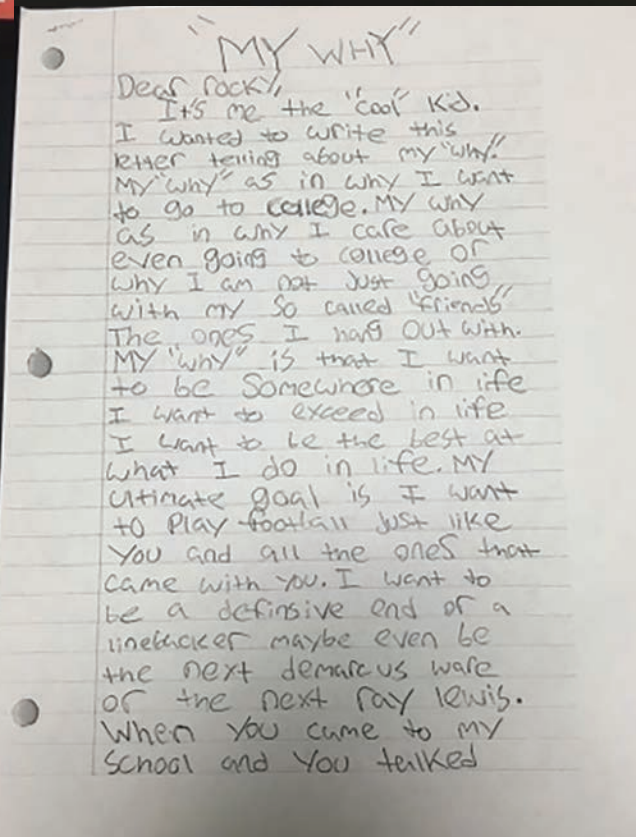 "MY WHY"
Dear rocky,
It's me the "cool" kid.
I wanted to write this
letter telling about my "why".
MY "why" as in why I want
to go to college. MY why
as in why I care about
even going to college or
why I am not Just going
with my so called "friends"
The ones I hang out with.
MY "why" is that I want
to be Somewhere in life
I want to exceed in life
I want to be the best at
what I do in life. MY
ultimate goal is I want
to Play football Just like
You and all the ones that
came with you. I want to
be a definsive end or a
linebacker maybe even be
the next demarcus ware
or the next ray lewis.
When You came to my
School and You talked